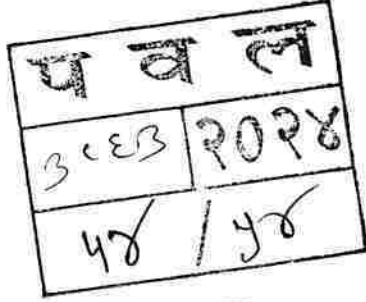 प व ल
३८६३ २०२४
५४ / ५४